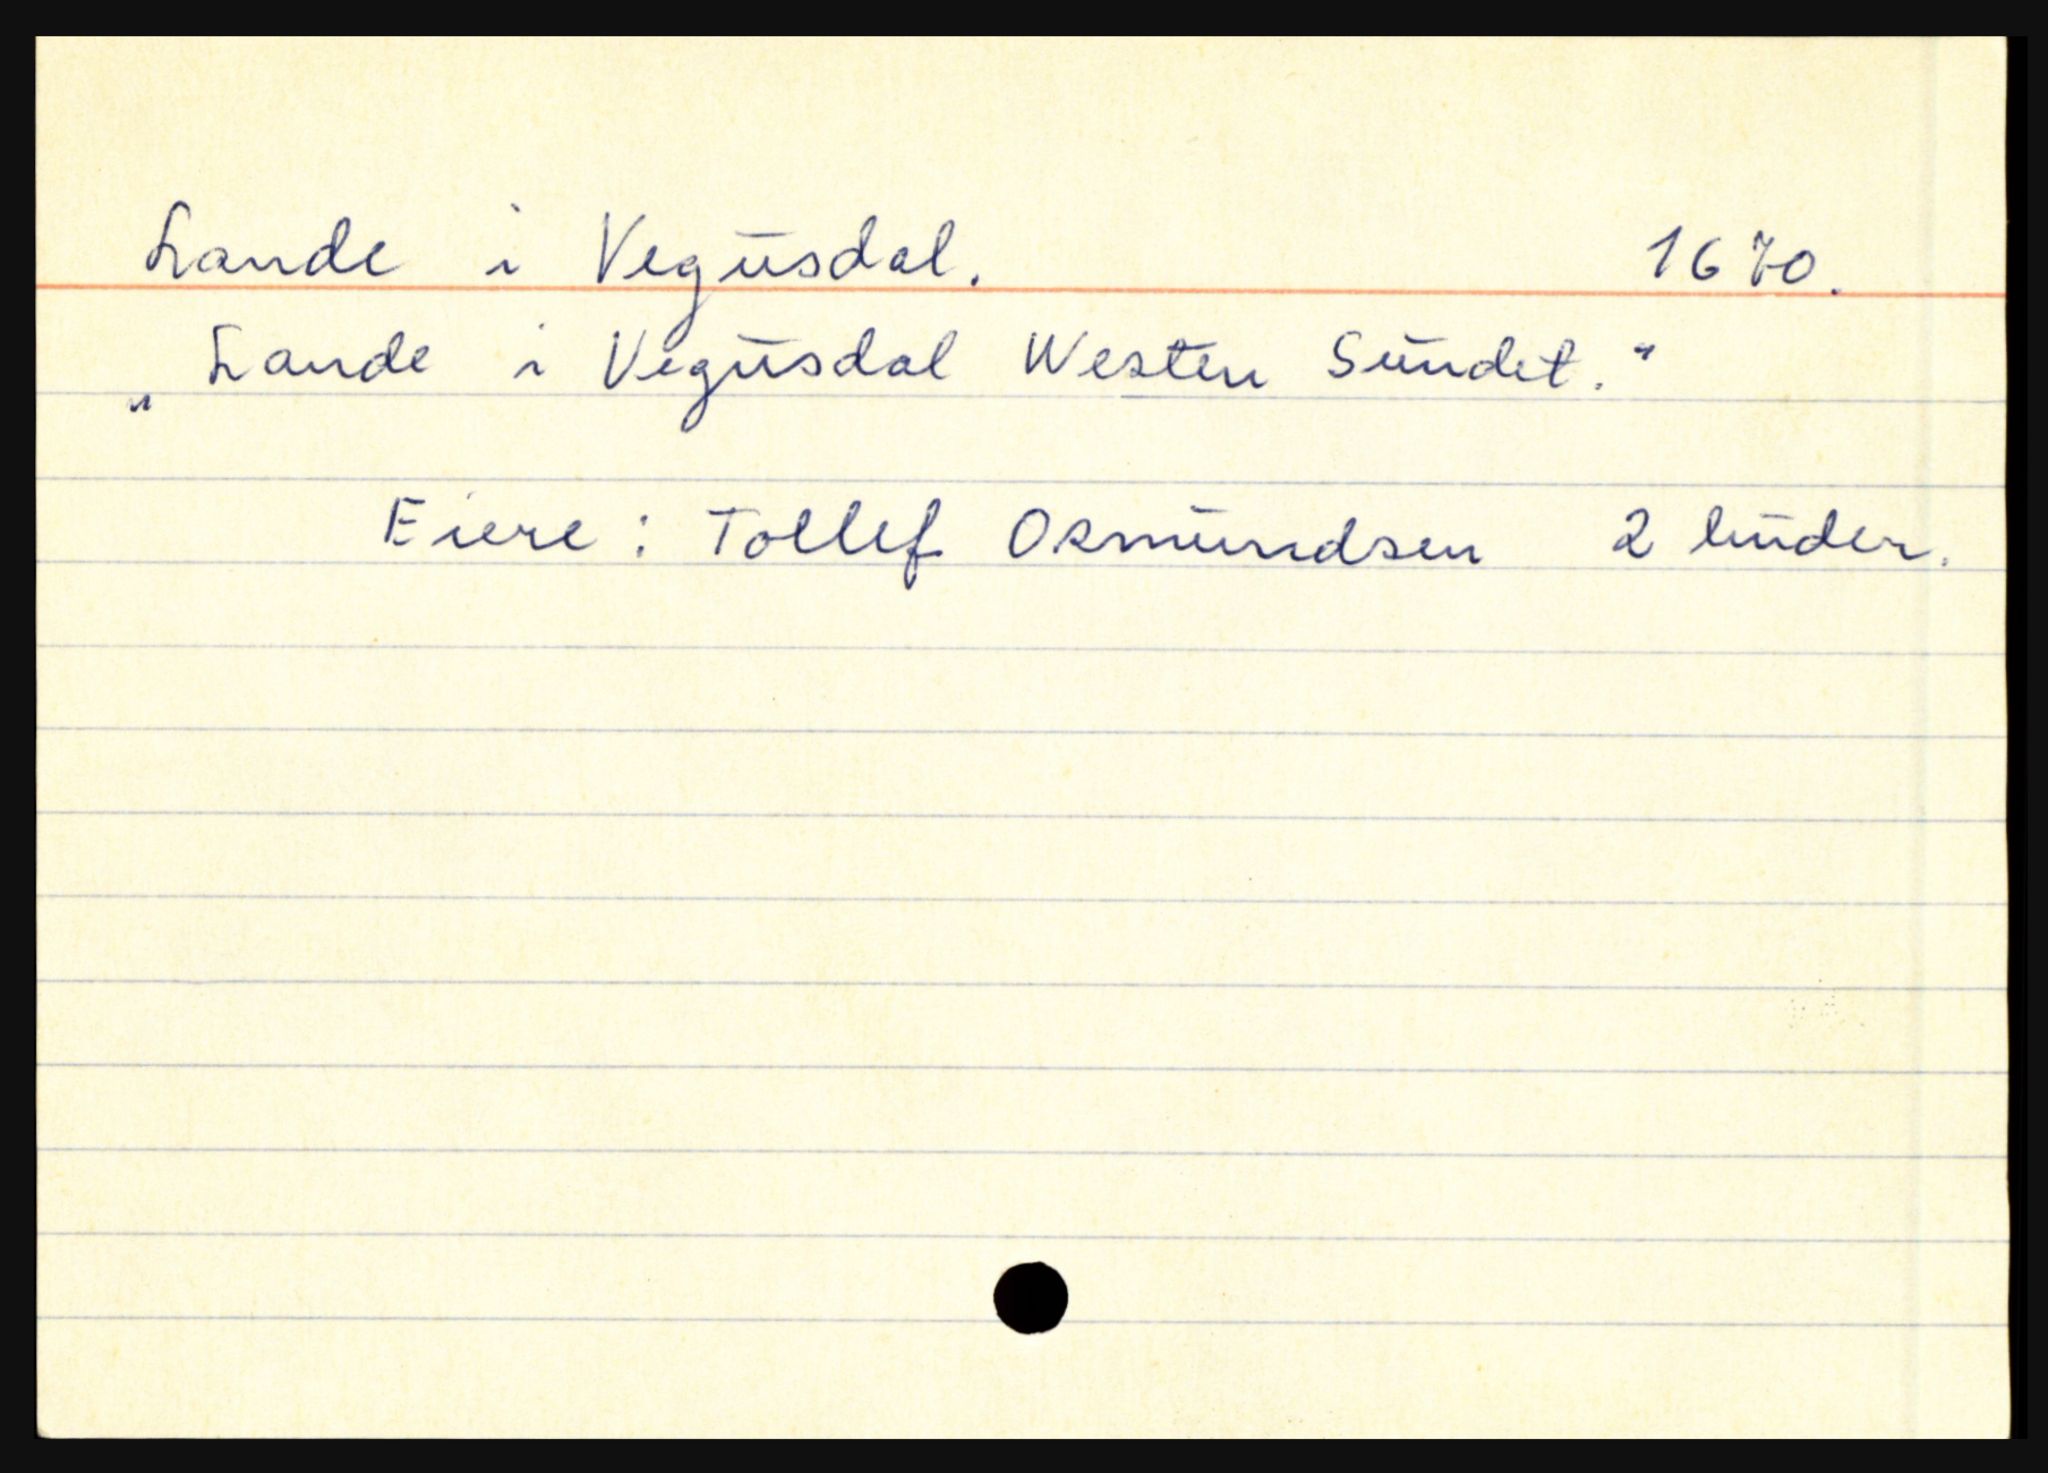 Lande i Vegusdal. 1670.
„Lande i Vegusdal Westen Sundet.“
Eiere: Tollef Osmundsen 2 huder.